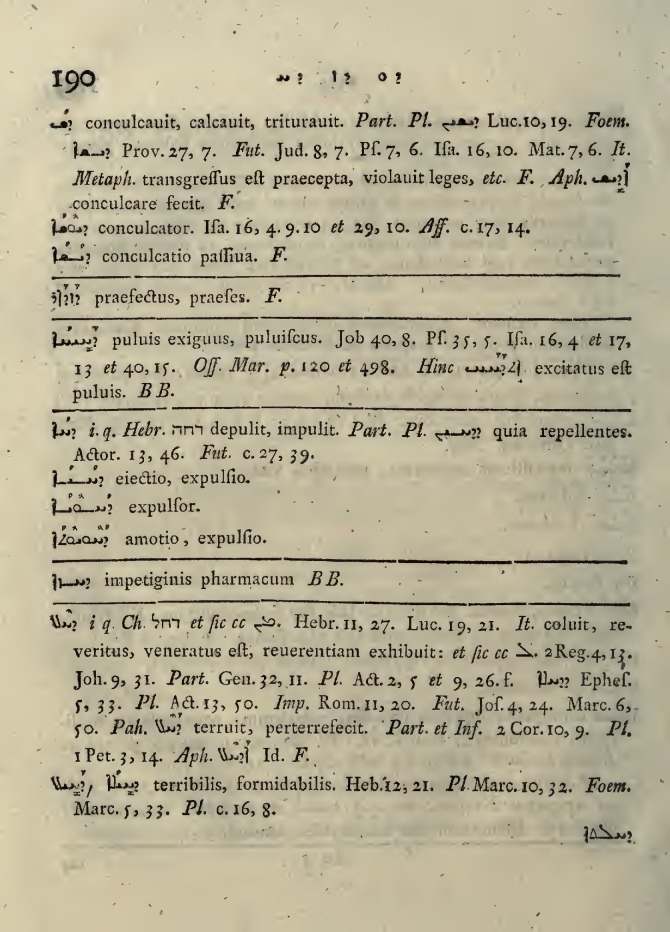 190 ܕܘ ܕܙ ܕܚ
ܕܫ conculcauit, calcauit, triturauit. Part. Pl. ܕܝܫܝܢ Luc. 10, 19. Foem.
ܕܝܫܐ Prov. 27, 7. Fut. Jud. 8, 7. Pſ. 7, 6. Iſa. 16, 10. Mat. 7, 6. It.
Metaph. transgreſſus eſt praecepta, violauit leges, etc. F. Aph. ܐܕܝܫ
conculcare fecit. F.
conculcator. Iſa. 16, 4. 9. 10 et 29, 10. Aſſ. c. 17, 14.
ܕܝܫܐ conculcatio paſſiua. F.
praefectus, praeſes. F.
ܕܚܝܚܐ puluis exiguus, puluiſcus. Job 40, 8. Pſ. 35, 5. Iſa. 16, 4 et 17,
13 et 40, 15. Off. Mar. p. 120 et 498. Hinc excitatus eſt
puluis. BB.
ܕܚܐ i. q. Hebr. דחה depulit, impulit. Part. Pl. ܕܕܚܝܢ quia repellentes.
Actor. 13, 46. Fut. c. 27, 39.
ܕܚܝܐ eiectio, expulſio.
ܕܚܘܝܐ expulſor.
amotio, expulſio.
impetiginis pharmacum BB.
ܕܚܠ i q. Ch. דחל et ſic cc ܡܢ. Hebr. 11, 27. Luc. 19, 21. It. coluit, re-
veritus, veneratus eſt, reuerentiam exhibuit: et ſic cc ܠ. 2 Reg. 4, 13.
Joh. 9, 31. Part. Gen. 32, 11. Pl. Act. 2, 5 et 9, 26. f. ܕܕܚܠܐ Epheſ.
5, 33. Pl. Act. 13, 50. Imp. Rom. 11, 20. Fut. Joſ. 4, 24. Marc. 6,
50. Pah. ܕܚܠ terruit, perterrefecit. Part. et Inf. 2 Cor. 10, 9. Pl.
1 Pet. 3, 14. Aph. ܐܕܚܠ Id. F.
ܕܚܝܠ, ܕܚܝܠܐ terribilis, formidabilis. Heb. 12, 21. Pl. Marc. 10, 32. Foem.
Marc. 5, 33. Pl. c. 16, 8.
ܕܚܠܬܐ